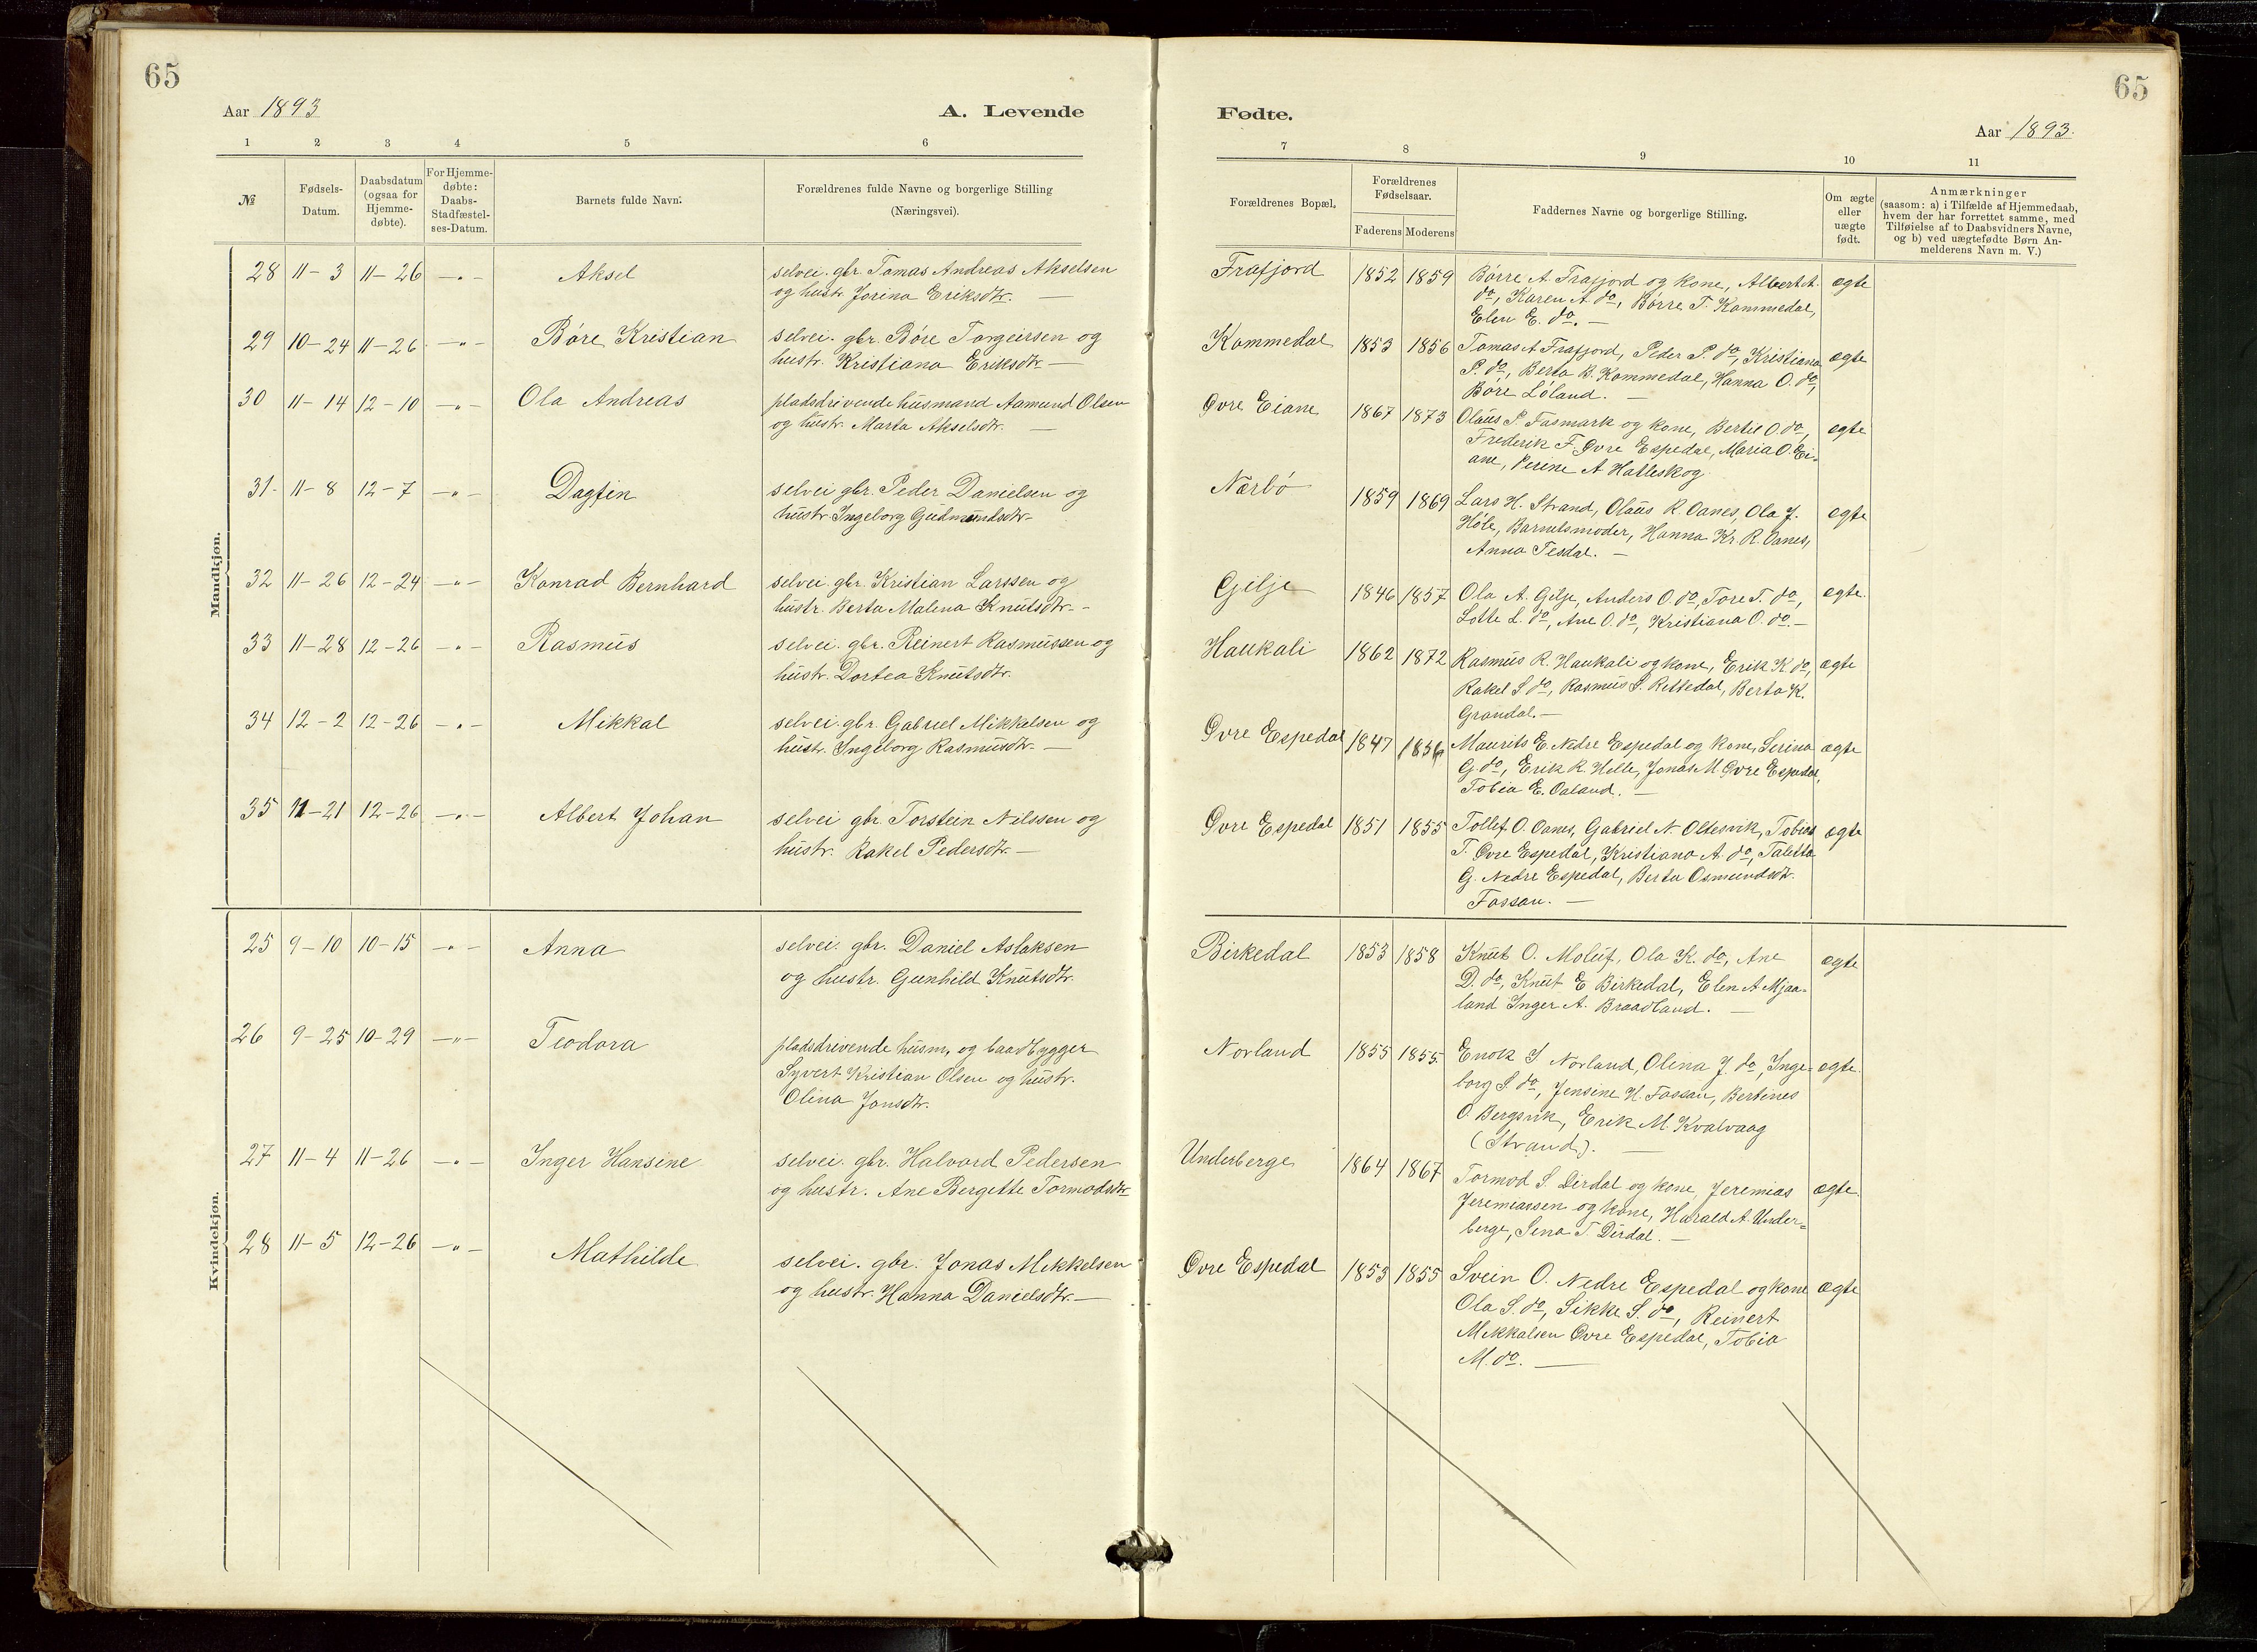 65
Aar 1893
A. Levende
1 2 3 4 5 6
№
Fødsels-Datum.
Daabsdatum (ogsaa for Hjemme-døbte).
For Hjemme-døbte: Daabs-Stadfæstel-ses-Datum.
Barnets fulde Navn.
Forældrenes fulde Navne og borgerlige Stilling
(Næringsvei).
Mandkjøn.
28 11-3 11-26 -"- Aksel selvei. gbr. Tomas Andreas Akselsen
og hustr. Jorina Eriksdtr. —
29 10-24 11-26 -"- Bóre Kristian selvei. gbr. Bóre Torgeirsen og
hustr. Kristiana Eriksdtr. —
30 11-14 12-10 -"- Ola Andreas pladsdrivende husmand Aamund Olsen
og hustr. Marta Akselsdtr. —
31 11-8 12-7 -"- Dagfin selvei gbr. Peder Danielsen og
hustr. Ingeborg Gudmundsdtr. -
32 11-26 12-24 -"- Konrad Bernhard selvei. gbr. Kristian Larssen og
hustr. Berta Malena Knutsdtr. -
33 11-28 12-26 -"- Rasmus selvei. gbr. Reinert Rasmussen og
hustr. Dortea Knutsdtr.
34 12-2 12-26 -"- Mikkal selvei. gbr. Gabriel Mikkelsen og
hustr. Ingeborg Rasmusdtr. —
35 11-21 12-26 -"- Albert Johan selvei gbr Torstein Nilssen og
hustr. Rakel Pedersdtr. —
Kvindekjøn.
25 9-10 10-15 -"- Anna selvei. gbr. Daniel Aslaksen
og hustr. Gunhild Knutsdtr.
26 9-25 10-29 -"- Teodora pladsdrivende husm. og baadbygger
Syvert Kristian Olsen og hustr.
Olina Jonsdtr.
27 11-4 11-26 -"- Inger Hansine selvei. gbr. Halvard Pedersen
og hustr. Ane Bergitte Tormodsdtr
28 11-5 12-26 -"- Mathilde selvei. gbr. Jonas Mikkelsen
og hustr. Hanna Danielsdtr. —
65
Fødte.
Aar 1893.
7 8 9 10 11
Forældrenes Bopæl.
Forældrenes Fødselsaar.
Faderens Moderens
Faddernes Navne og borgerlige Stilling.
Om ægte eller uægte født.
Anmærkninger
(saasom: a) i Tilfælde af Hjemmedaab,
hvem der har forrettet samme, med
Tilføielse af to Daabsvidners Navne,
og b) ved uægtefødte Børn An-
melderens Navn m. V.)
Frafjord 1852 1859 Børre A. Frafjord og kone, Albert A. ægte
do, Karen A. do, Børre T. Kommedal,
Elen E. do. —
Kommedal 1853 1856 Tomas A Frafjord, Peder P. do, Kristiana ægte
P. do, Berta B. Kommedal, Hanna O. do,
Bóre Lóland. —
Øvre Eiane 1867 1873 Olaus P. Fasmark og kone, Bertie O. do, ægte
Frederik F. Øvre Espedal, Maria O. Ei-
ane, Perine A Halleskog.
Nærbó 1859 1869 Lars H. Strand, Olaus R Oanes, Ola J. ægte
Hóle, Barnetsmoder, Hanna Kr. R. Oanes,
Anna Tesdal. —
Gilje 1846 1857 Ola A. Gilje, Anders O. do, Tore T. do, ægte.
Lotte L. do, Ane O. do, Kristiana O. do. —
Haukali 1862 1872 Rasmus R. Haukali og kone, Erik K. do, ægte
Rakel S. do, Rasmus S. Rettedal, Berta K.
Grandal. —
Øvre Espedal 1847 1856 Maurits E. Nedre Espedal og kone, Serina ægte
G. do, Erik R. Helle, Jonas M. Øvre Espedal,
Tobia E. Oaland. —
Øvre Espedal 1851 1855 Tollef O. Oanes, Gabriel N. Oltesvik, Tobias ægte
T. Øvre Espedal, Kristiana A. do, Taletta
G. Nedre Espedal, Berta Osmundsdtr.
Fossan. —
Birkedal 1853 1858 Knut O. Moluf, Ola K. do, Ane ægte
D. do, Knut E Birkedal, Elen A Mjaa-
land Inger A. Braadland. —
Norland 1855 1855. Enok S. Norland, Olena J. do, Inge- ægte.
borg S. do, Jensine H. Fossan, Bertines
O. Bergsvik, Erik M. Kvalvaag
(Strand). —
Underberge 1864 1867 Tormod S. Dirdal og kone, Jeremias ægte.
Jeremiassen og kone, Harald A. Under-
berge, Sena T. Dirdal. —
Øvre Espedal 1853 1855 Svein O. Nedre Espedal og kone ægte
Ola S. do, Sikke S. do, Reinert
Mikkalsen Øvre Espedal, Tobia
M. do. —